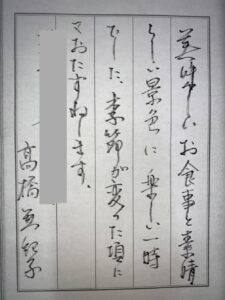 美味しいお食事と素晴
らしい景色に楽しい一時
でした、季節が変った頃に
又おたずねします。
高橋美紀子